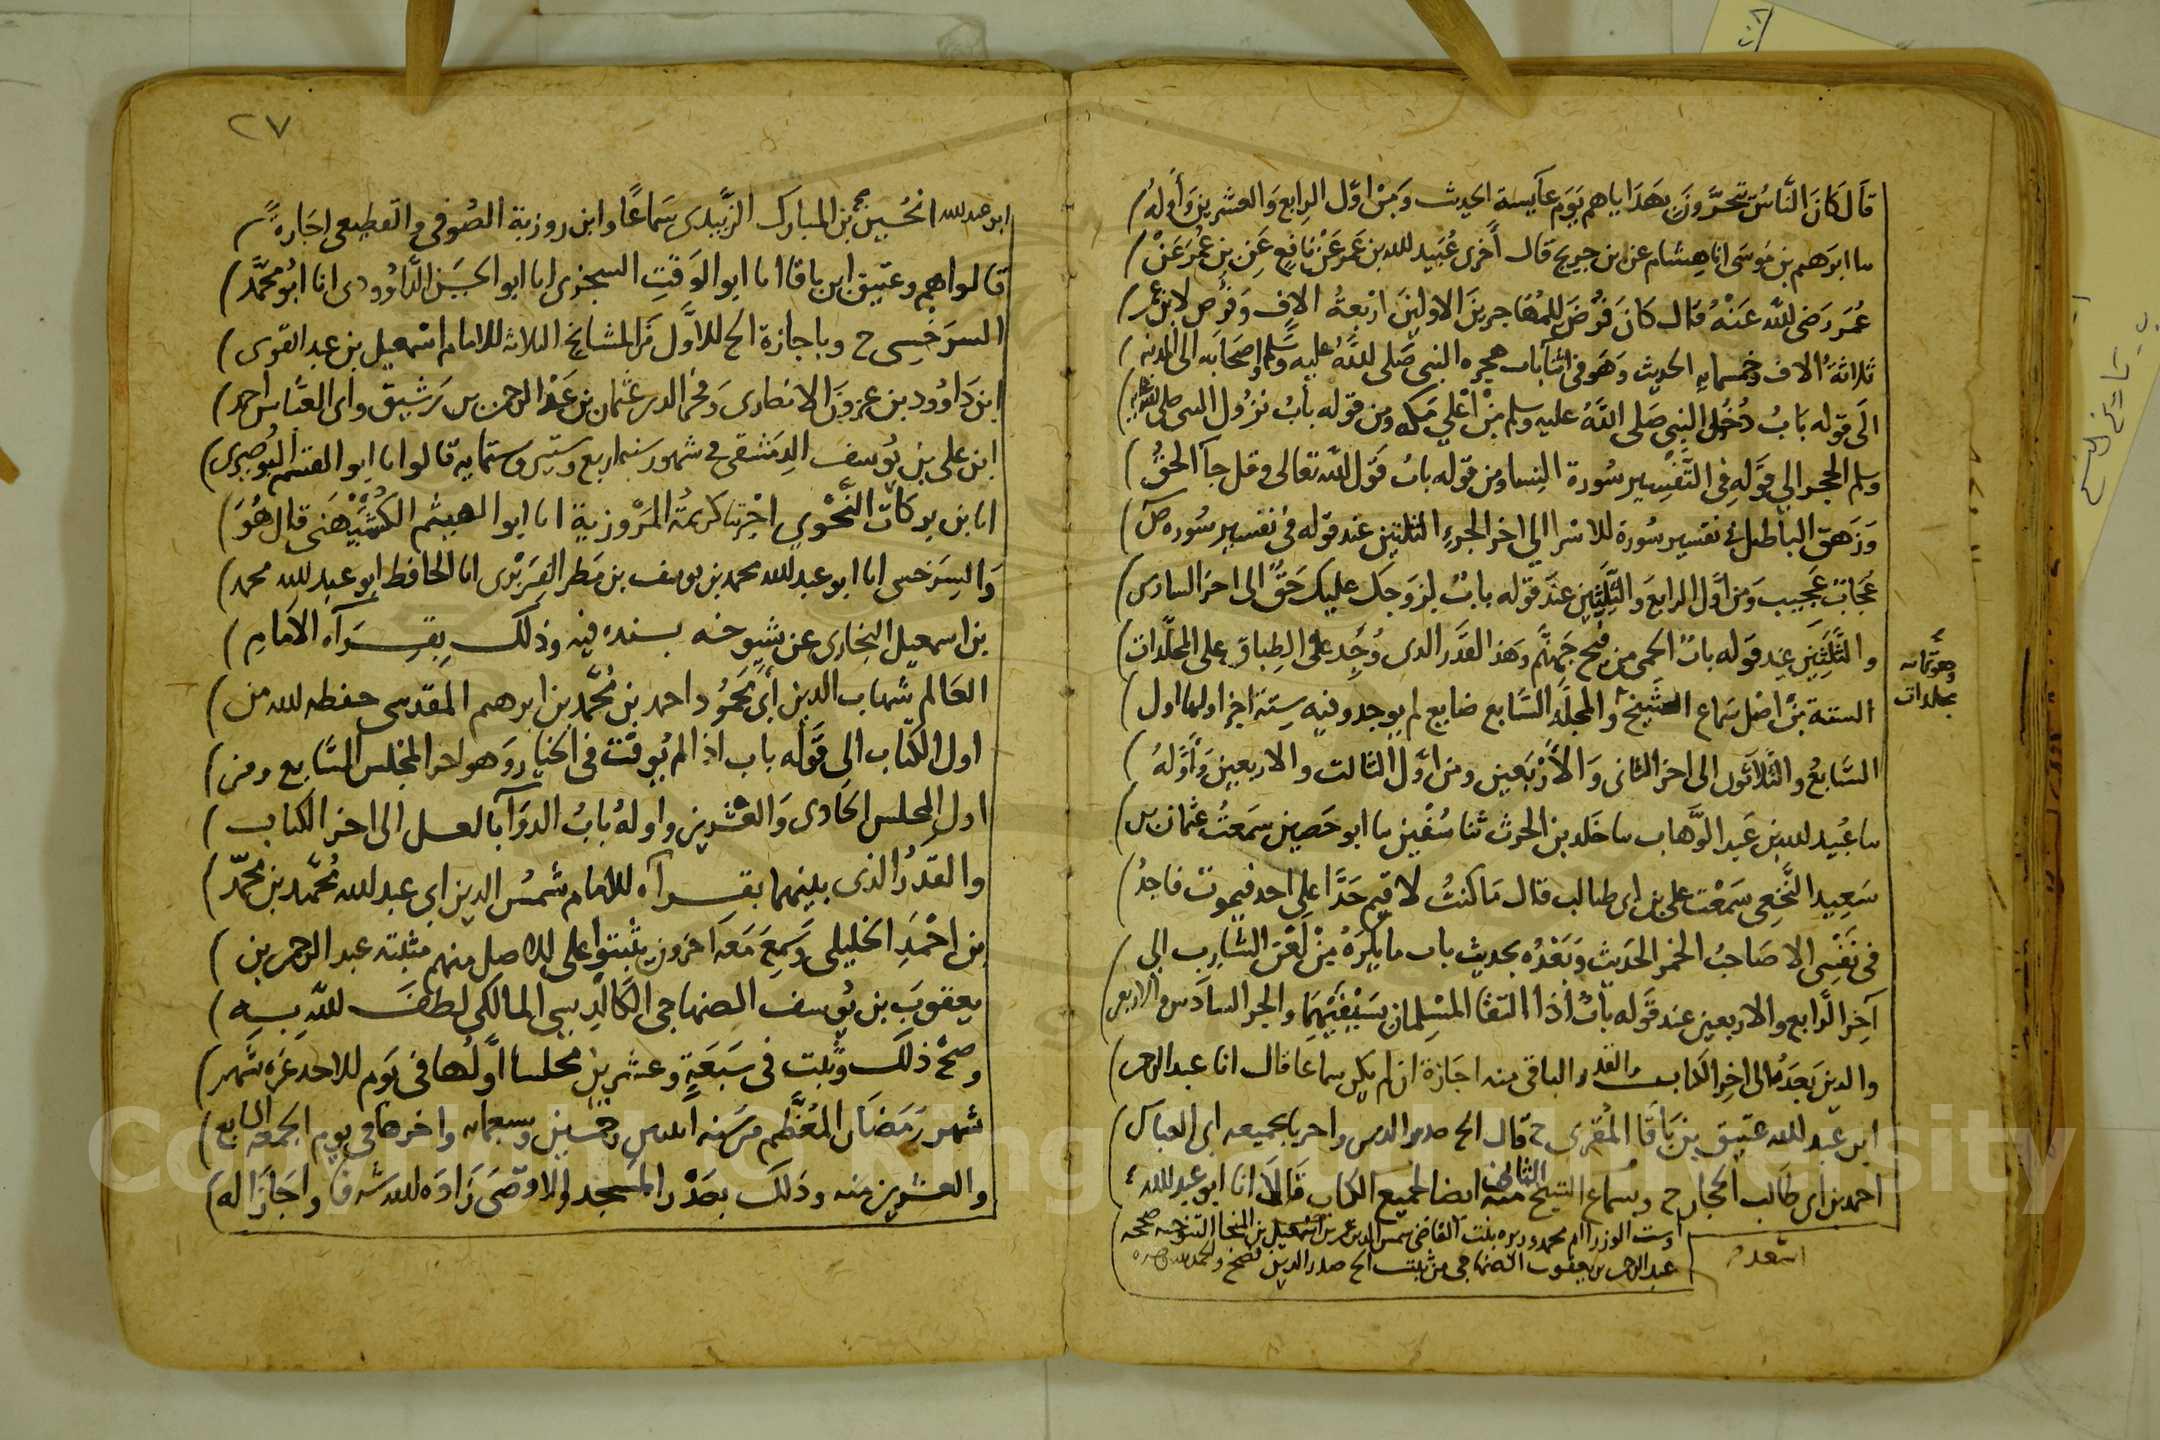 قال كَانَ النَّاسُ يتحرَّون بهَدَاياهم يَوَم عآيشة الحديث وَمِنْ اوَّل الرابع وَالعشرين وَأوله
سا ابرهيم بن مُوسَى انا هِشام عن ابن جريج قال أخبرنى عُبَيد الله بن عمَر عَنْ نافعٍ عَن بن عُمَر عَنْ
عُمَر رَضى الله عَنْهُ قال كَانَ فَرْضَ للمُهَاجرينَ الاولينَ اربَعةُ الاف وَفرض لابن عمر
ثلاثةُ الاف وخمسمايه الحديث وَهَو فى اثنآ باب هجره النبى صَلى اللهُ عليه وسَلم واصحَابه الى المدينه
الَى قوله بَابُ دُخُول النبى صَلى اللهُ عليه وسلم مِنْ اعْلى مَكه ومن قوله بابُ نزُول النبى صلى الله عليه
وسلم الحجر الى قولِه فى التَّفسِير سُورة النِسا ومن قوله بابُ قَول الله تعالى وقل جآ الحقُ
وَزَهق الباطل فى تفسير سُورة الاسرا الى اخر الجزءِ الثلثين عند قوله فى تفسير سُوره ص
عُجَابٌ عَجيب وَمن اوَّل الرابعَ وَالثَّلثين عندَ قوله بابُ لزوجك عليك حَقٌ الى اخر السادس
والثَّلثين عِند قوله بابُ الحمى من فيح جَهنَّم وهَذ القدَر الذى وُجِد على الطِباق على المجلّدات
الستة مِنْ اصْل سَماع الشيخ والمجلد السَّابع ضايع لم يوجد وفيه سِتة اجزا اولها اول
السَّابعُ والثَّلاثون الى اخر الثانى وَالأربَعين ومن اوَّل الثالث والاربعين وَأوَّلهُ
سا عُبيد الله بن عَبد الوَّهاب سا خالد بن الحرث ثنا سُفْين سا ابو حَصين سَمعتُ عُثمان بن
سَعِيد النَّخعِى سَمعْت على بن ابى طالب قال مَا كنتُ لا قيم حَدَّا على احد فيموت فاجدُ
فى نَفسِى الا صَاحبُ الخمر الحَديث وَبَعْدُه بحديث باب ما يكرَهُ مِنْ لعْن الشارب الى
آخر الرَّابع والاربعين عند قوله بابُ اذا التقا المُسِلمان بسَيْفيْهِمَا والجز السَادس والاربعين
والدين بَعدَهُ الى اخِر الكتاب والقدر الباقى منه اجَازة ان لم يكن سماعا قال انا عبد الرحمن
ابن عَبد الله عتيق بن بَاقا المُقرى ح قال الخ صدر الدين واخبرنا بجميعه ابى العباس
احمد بن ابى طَالب الحجار ح وبسماع الشيخ الثانى منه ايضا لجميع الكتاب قالَا انا ابو عبد الله
وهو ثمانيه
مجلدات
وست الوزرا ام محمد وزيره بنت القاضى شمس الدين عمر بن اسعد بن المنجا التنوخيه
عبد الرحمن بن يعقوب الصنهاجى من ثبت الخ صدر الدين فصح والحمد لله
اسعد
٢٧
ابو عبد الله الحُسين بن المبارك الزَّبيدى سَماعًا وابن روزبة الصُوفى والقطيعى اجَازةً
قالوا هم وعتيق ابن باقا انا ابو الوَقتِ السجزى انا ابو الحسَن الدَّاوودى انا ابُو محمَّد
السرَخسِى ح وباجازة الخ الأوَّل من المشايخ الثلاثه للامام اسْمعيل بن عبد القوى
ابن دَاوُود بن عزونَ الانصارى وَفخر الدين عثمان بن عَبْد الرحمن بن رَشيق وابى العَّباس احمد
ابن على بن يُوسف الدِمشقى فى شهور سنه اربع وستين وستمايه قالوا انا ابو القسم البُوصيرى
انا بن بركات النَّحْوي اخبرتنا كريمَةُ المَرْوزية انا ابو الهيثم الكُشمَيْهَنى قال هُوَ
وَالسَرَخسى انا ابو عبد الله محمد بن يوسف بن مَطر الفِرَبْرى انا الحافظ ابو عبد الله محمد
بن اسمعيل البخارى عن شيوخه بسنده فيه وذلك بِقرآه الامَامِ
العَالم شهاب الدين أبى مَحمُود احمد بن مُحَّمد بن ابرهيم المقدسى حفظه الله من
اول الكتاب الى قَولِه باب اذا لم يُوقت فى الخيار وَهو اخر المجلس السَّابع ومن
اول المجلس الحَادى وَالعشرين واوله بابُ الدوَآ بالعسل الى اخر الكتاب
والقدْرُ الذى بينهما بقرآه الامام شمسُ الدين ابى عبد الله مُحَّمد بن محمّد
بن احْمَدِ الخليلى وَسَمِعَ مَعَه آخرون يثبتوا على الاصل منهم مثبته عبد الرحمن بن
يعقوبَ بن يُوسف الصنهاجى الكَالديسى المالكى لطفَ اللهِ بِه
وصَحَّ ذلك وثَبت فى سَبعَةٍ وعشرين مجلسا أوَّلها فى يَوم الاحد غرَة شَهر
شهر رَمَضَان المُعَظَّم من سَنه اثنين وخمسين وسبعمايه واخرها فى يوم الجمعه السابع
والعشرين منه وذلك بصَدْر المَسجد الاقصَى زَادَه الله شرفا واجَازَا له